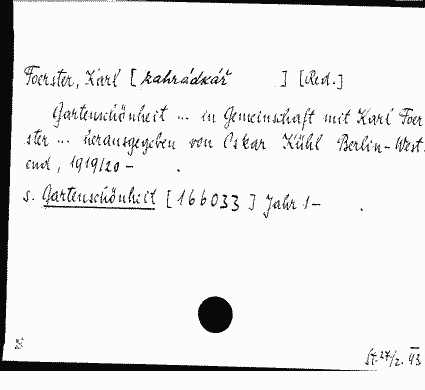 Foerster, Karl [zahrádkář ] [Red.]
Gartenschönheit ... in Gemeinschaft mit Karl Foer
ster ... herausgegeben von Oskar Kühl Berlin-West-
end, 1919/20 -
s. Gartenschönheit [166033] Jahr 1-
St. 27/2. 43